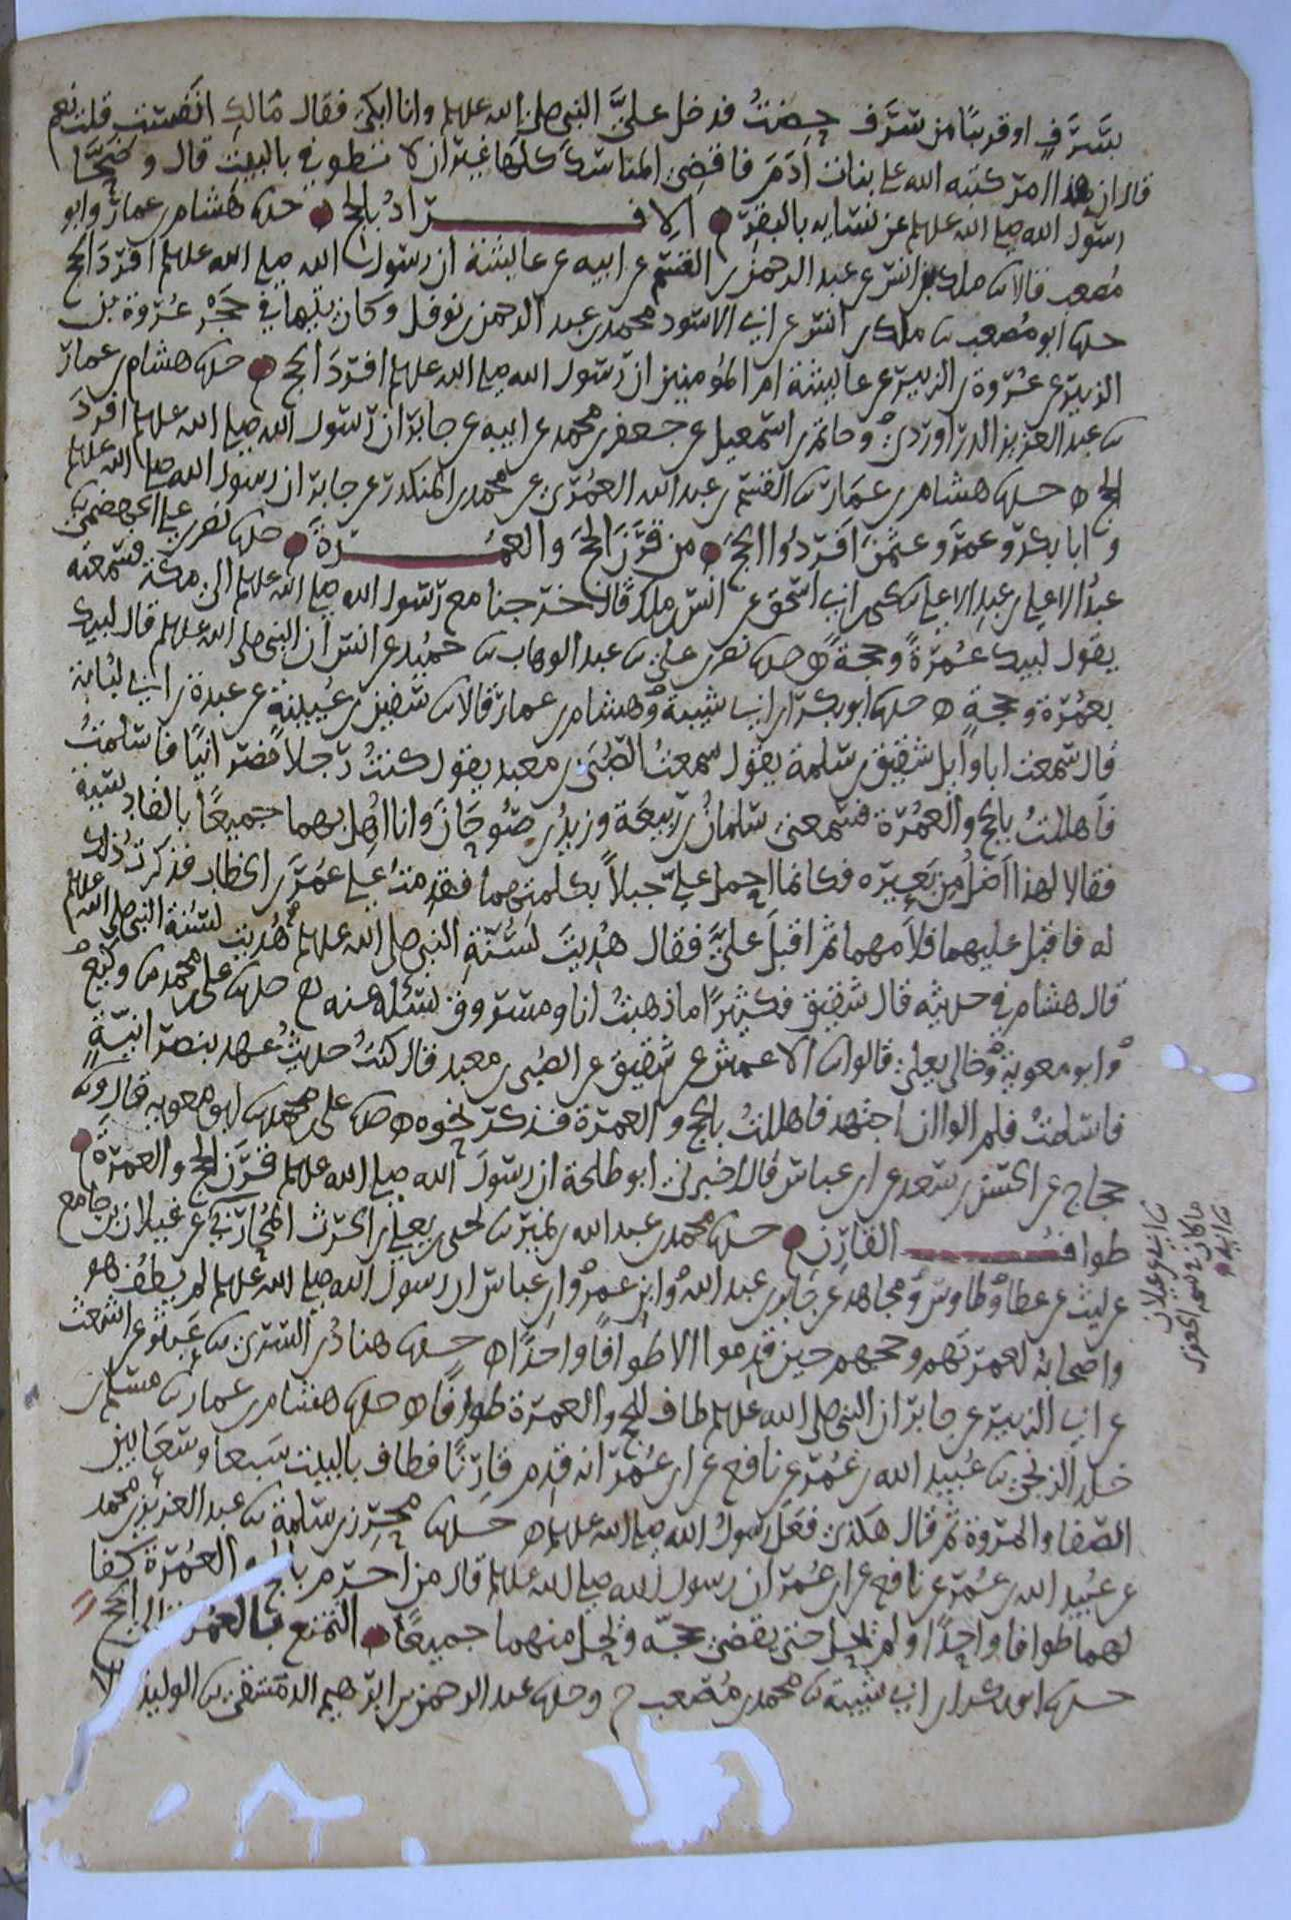 بسرف او قريبا من سرف حضت فدخل علي النبي صلى الله عليه وانا ابكي فقال مالك انفست قلت نعم
قال ان هذا امر كتبه الله على بنات ادم فاقضي المناسك كلها غير ان لا تطوفي بالبيت قال وضحا
رسول الله صلى الله عليه عن نسايه بالبقر الافراد بالحج حدثنا هشام بن عمار وابو
مصعب قالا ثنا ملك بن انس عن عبد الرحمن بن القسم عن ابيه عن عايشة ان رسول الله صلى الله عليه افرد الحج
حدثنا ابو مصعب ثنا ملك بن انس عن ابي الاسود محمد بن عبد الرحمن بن نوفل وكان يتيما في حجر عروة بن
الزبير عن عروة بن الزبير عن عايشة ام المومنين ان رسول الله صلى الله عليه افرد الحج حدثنا هشام بن عمار
ثنا عبد العزيز الدراوردي وحاتم بن اسمعيل عن جعفر بن محمد عن ابيه عن جابر ان رسول الله صلى الله عليه افرد
الحج حدثنا هشام بن عمار ثنا القسم بن عبد الله العمري عن محمد بن المنكدر عن جابر ان رسول الله صلى الله عليه
وابا بكر وعمر وعثمن افردوا الحج من قرن الحج والعمرة حدثنا نصر بن علي الجهضمي ثنا
عبد الاعلى بن عبد الاعلى ثنا يحيى بن ابي اسحق عن انس بن ملك قال خرجنا مع رسول الله صلى الله عليه الى مكة فسمعته
يقول لبيك عمرة وحجة حدثنا نصر بن علي ثنا عبد الوهاب ثنا حميد عن انس ان النبي صلى الله عليه قال لبيك
بعمرة وحجة حدثنا ابو بكر بن ابي شيبة وهشام بن عمار قالا ثنا سفين بن عيينة عن عبدة بن ابي لبابة
قال سمعت ابا وايل شقيق بن سلمة يقول سمعت الصبي بن معبد يقول كنت رجلا نصرانيا فاسلمت
فاهللت بالحج والعمرة فسمعني سلمان بن ربيعة وزيد بن صوحان وانا اهل بهما جميعا بالقادسية
فقالا لهذا اضل من بعيره فكانما حمل علي جبلا بكلمتهما فقدمت على عمر بن الخطاب فذكرت ذلك
له فاقبل عليهما فلامهما ثم اقبل علي فقال هديت لسنة النبي صلى الله عليه هديت لسنة النبي صلى الله عليه
قال هشام في حديثه قال شقيق فكثيرا ما ذهبت انا ومسروق نسئله عنه حدثنا علي بن محمد ثنا وكيع
وابو معوية وخالي يعلى قالوا ثنا الاعمش عن شقيق عن الصبي بن معبد قال كنت حديث عهد بنصرانية
فاسلمت فلم الوا ان اجتهد فاهللت بالحج والعمرة فذكر نحوه حدثنا علي بن محمد ثنا ابو معوية قال ثنا
حجاج عن الحسن بن سعد عن ابن عباس قال اخبرني ابو طلحة ان رسول الله صلى الله عليه قرن الحج والعمرة
طواف القارن حدثنا محمد بن عبد الله بن نمير ثنا يحيى بن يعلى بن الحرث المحاربي عن غيلان بن جامع
عن ليث عن عطا وطاوس ومجاهد عن جابر بن عبد الله وابن عمر وابن عباس ان رسول الله صلى الله عليه لم يطف هو
واصحابه لعمرتهم وحجهم حين قدموا الا طوافا واحدا حدثنا هناد بن السري ثنا عبثر عن اشعث
عن ابي الزبير عن جابر ان النبي صلى الله عليه طاف للحج والعمرة طوافا حدثنا هشام بن عمار ثنا مسلم بن
خلد الزنجي ثنا عبيد الله بن عمر عن نافع عن ابن عمر انه قدم قارنا فطاف بالبيت سبعا وسعا بين
الصفا والمروة ثم قال هكذى فعل رسول الله صلى الله عليه حدثنا محرز بن سلمة ثنا عبد العزيز بن محمد
عن عبيد الله بن عمر عن نافع عن ابن عمر ان رسول الله صلى الله عليه قال من احرم بالحج والعمرة كفا
لهما طوافا واحدا ولم يحل حتى يقضي حجه ويحل منهما جميعا التمتع بالعمرة الى الحج
حدثنا ابو بكر بن ابي شيبة ثنا محمد بن مصعب ح وحدثنا عبد الرحمن بن ابرهيم الدمشقي ثنا الوليد